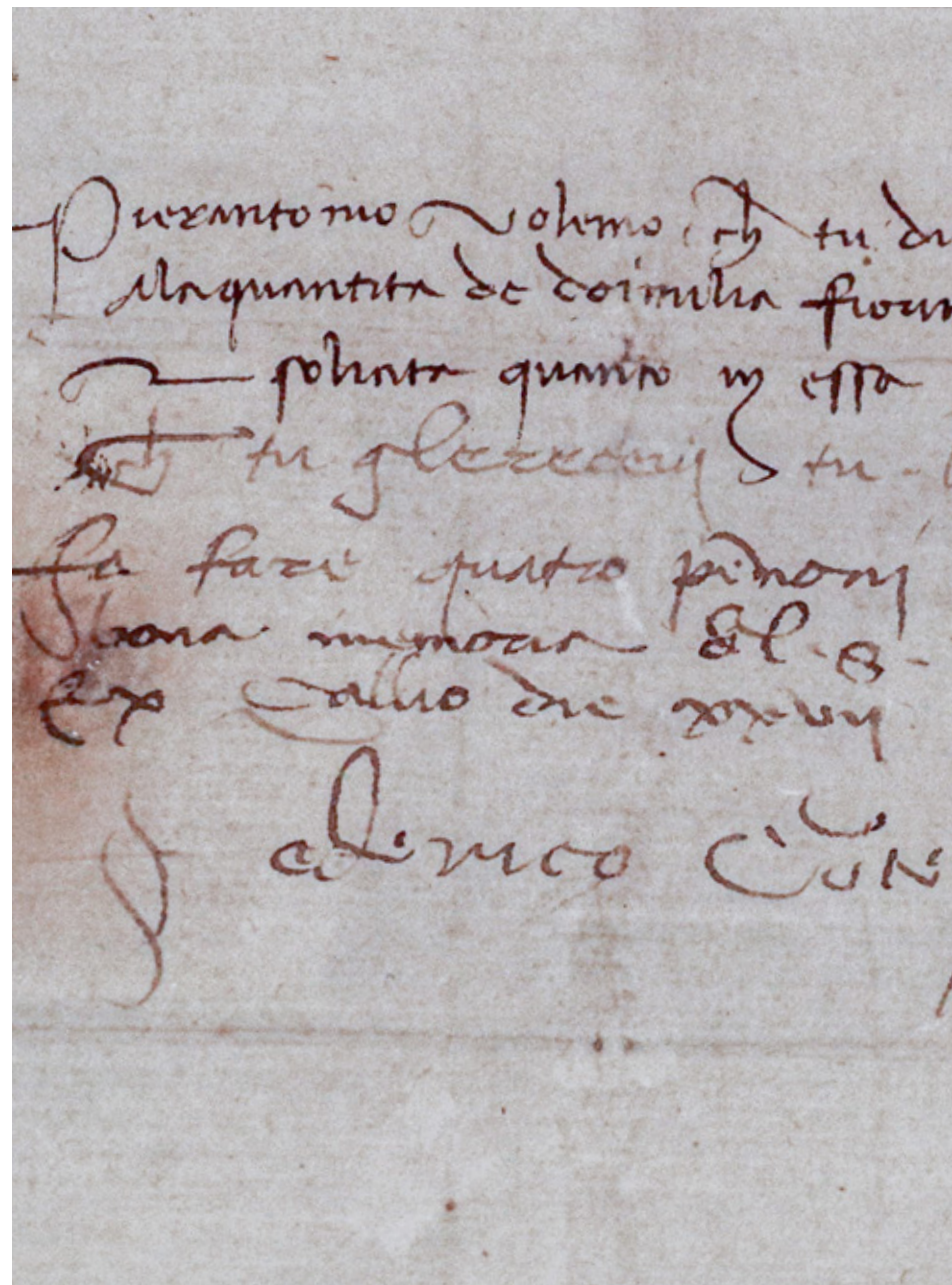 Pierantonio Volemo ch tu di
Ala quantita de doimilia fiorin
solicita quanto in essa
ch tu gle recevi tu
fa fare quatro penonj
bona memoria del S
Ex Callio die xxvij
federico Conte